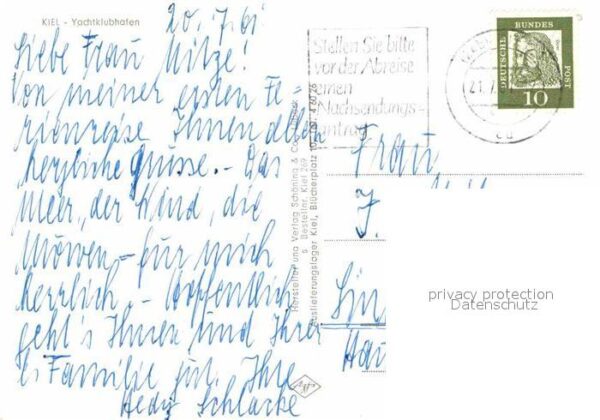 KIEL - Yachtklubhafen
20.7.61
Liebe Frau Mitze!
Von meiner ersten Fe-
rienreise Ihnen allen
herzliche Grüsse. - Das
Meer, der Wind, die
Möwen - für mich
herrlich. - Hoffentlich
geht's Ihnen und Ihrer
lb. Familie gut. Ihre
Hedy Schlacke
Hersteller und Verlag Schöning & Co.
Besteller, Kiel 269
Auslieferungslager Kiel, Blücherplatz
Stellen Sie bitte
vor der Abreise
einen
Nachsendungs-
antrag
21.7.
DEUTSCHE
BUNDES
POST
10
Frau
J.
privacy protection
Datenschutz